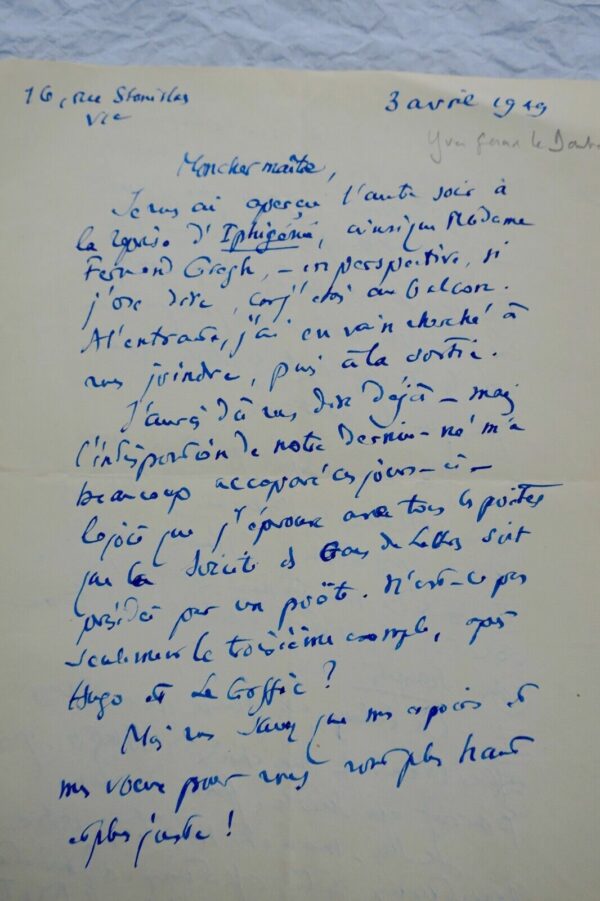 16, rue Stanislas
VIe
3 avril 1949
Yves Gérard le Dan
Mon cher maître,
Je vous ai aperçu l'autre soir à
la reprise d'Iphigénie, ainsi que Madame
Fernand Gregh, – en perspective, si
j'ose dire, car j'étais au balcon.
A l'entracte, j'ai en vain cherché à
vous joindre, puis à la sortie.
J'aurais dû vous dire déjà – mais
l'indisposition de notre dernier-né m'a
beaucoup accaparé ces jours-ci –
la joie que j'éprouve avec tous les poètes
que la Société des Gens de Lettres soit
présidée par un poète. N'est-ce pas
seulement le troisième exemple, après
Hugo et Le Goffic ?
Mais vous savez que mes espoirs et
mes vœux pour vous vont plus haut
et plus juste !